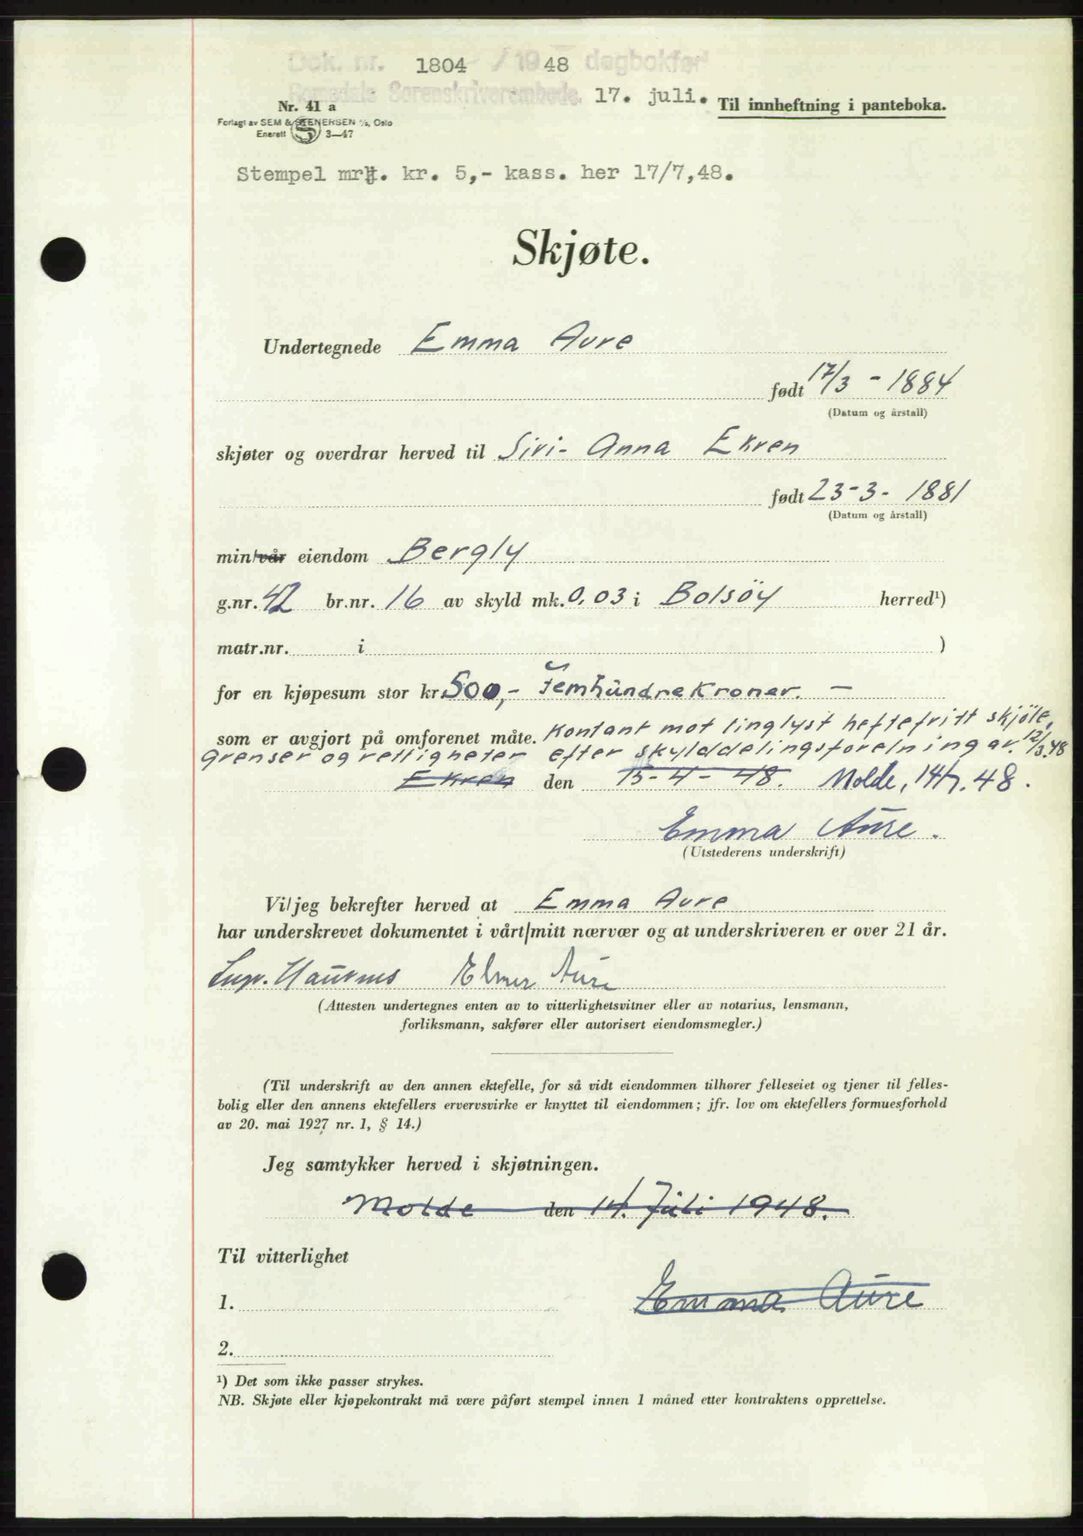 Dok. nr. 1804 / 1948 dagbokført
Romsdals Sorenskriverembede. 17. juli. Til innheftning i panteboka.
Nr. 41 a
Forlagt av SEM & STENERSEN A/S, Oslo
Enerett S 3—47
Stempel mrk. kr. 5,- kass. her 17/7,48.
Skjøte.
Undertegnede Emma Aure
født 17/3 - 1884
(Datum og årstall)
skjøter og overdrar herved til Siri- Anna Ekren
født 23-3- 1881
(Datum og årstall)
min/vår eiendom Bergly
g.nr. 42 br.nr. 16 av skyld mk. 0,03 i Bolsöy herred¹)
matr.nr. i )
for en kjøpesum stor kr. 500,- Femhundrekroner. —
som er avgjort på omforenet måte. Kontant mot tinglyst heftefritt skjöte,
grenser og rettigheter efter skylddelingsforetning av. 12/3.48
Ekren den 15-4-48. Molde, 14/7.48.
Emma Aure.
(Utstederens underskrift)
Vi/jeg bekrefter herved at Emma Aure
har underskrevet dokumentet i vårt/mitt nærvær og at underskriveren er over 21 år.
Aure
(Attesten undertegnes enten av to vitterlighetsvitner eller av notarius, lensmann,
forliksmann, sakfører eller autorisert eiendomsmegler.)
(Til underskrift av den annen ektefelle, for så vidt eiendommen tilhører felleseiet og tjener til felles-
bolig eller den annens ektefellers ervervsvirke er knyttet til eiendommen; jfr. lov om ektefellers formuesforhold
av 20. mai 1927 nr. 1, § 14.)
Jeg samtykker herved i skjøtningen.
Molde den 14. Juli 1948.
Til vitterlighet
1. Emma Aure
2.
¹) Det som ikke passer strykes.
NB. Skjøte eller kjøpekontrakt må være påført stempel innen 1 måned etter kontraktens opprettelse.